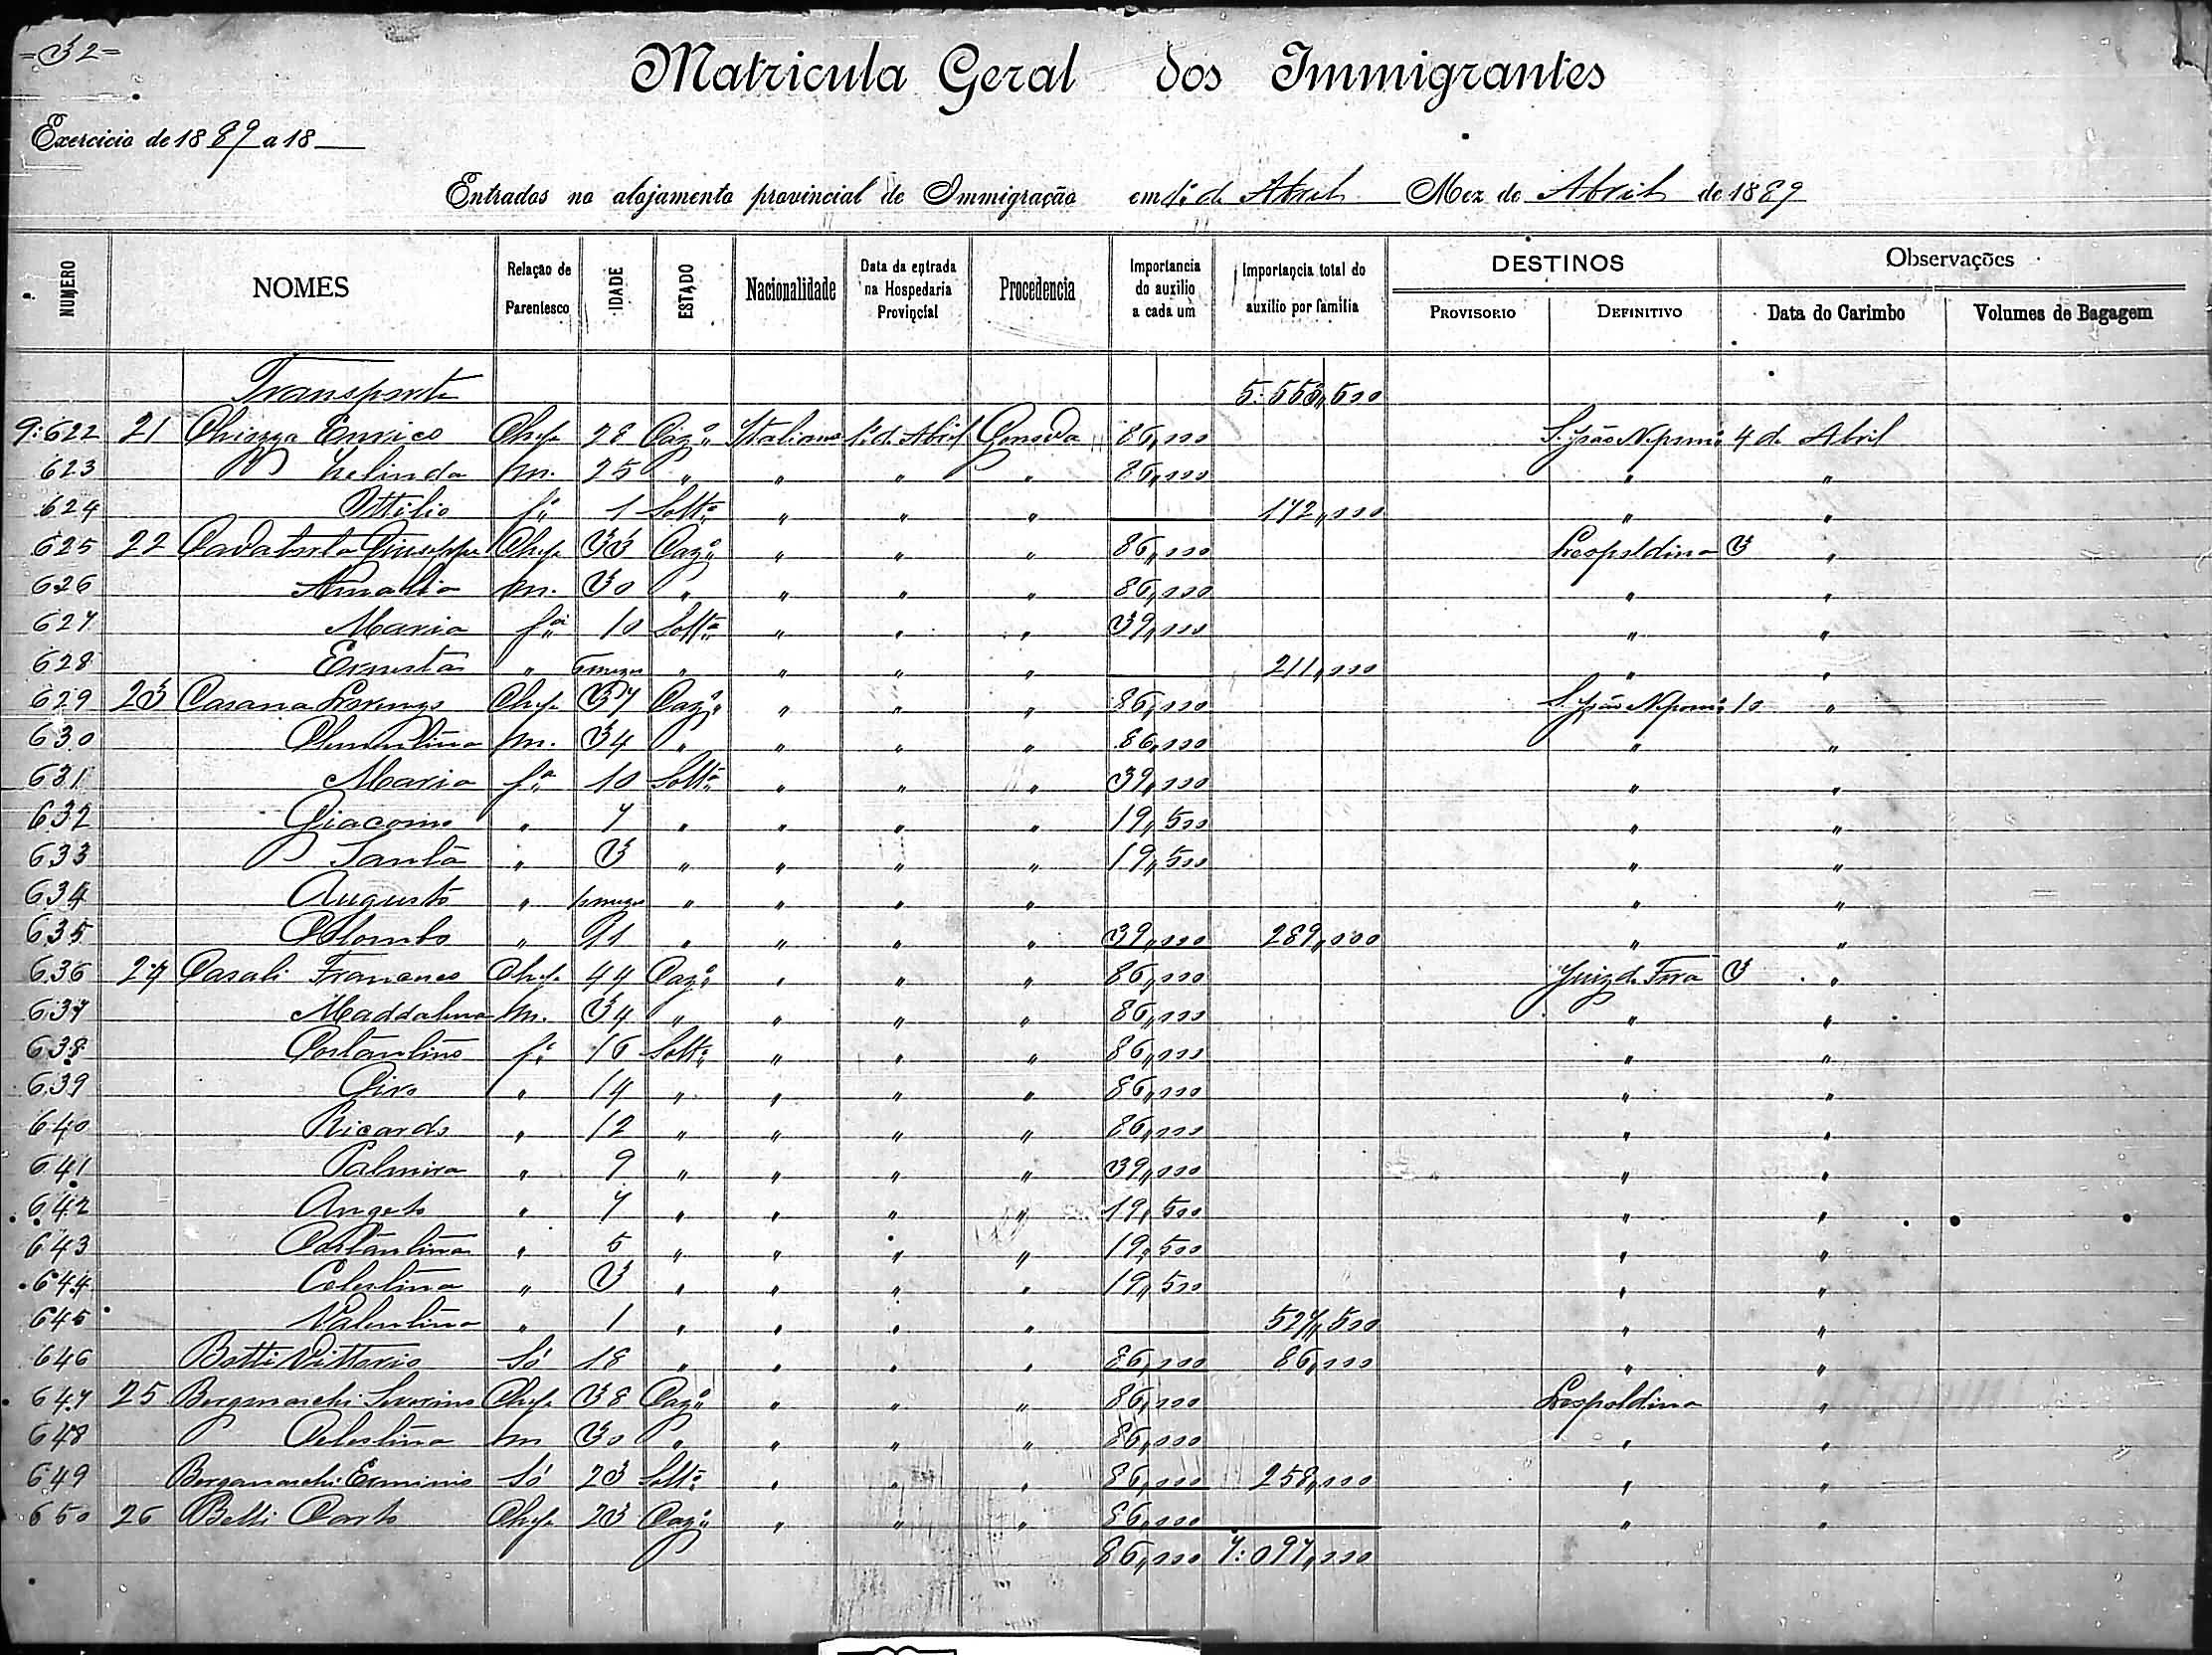 =32=
Matricula Geral dos Immigrantes
Exercicio de 1889 a 18
Entrados no alojamento provincial de Immigração em 1º de Abril Mez de Abril de 1889
NUMERO NOMES Relação de Parentesco IDADE ESTADO Nacionalidade Data da entrada na Hospedaria Provincial Procedencia Importancia do auxilio a cada um Importancia total do auxilio por familia DESTINOS PROVISORIO DEFINITIVO Observações Data do Carimbo Volumes de Bagagem
Transporte 5:553,,500
9:622 21 Chizza Enrico Chefe 28 Cazº Italiano 1º de Abril Genova 86,,000 S. João Nepomº 4 de Abril
623 Zelinda m. 25 " " " " 86,,000 " "
624 Ottilio fº 1 Soltº " " " 172,,000 " "
625 22 Cavatorta Giuseppe Chefe 33 Cazº " " " 86,,000 Leopoldina 3 "
626 Amalia m. 30 " " " " 86,,000 " "
627 Maria fª 10 Soltª " " " 39,,000 " "
628 Ernesta " 6 mezes " " " " 211,,000 " "
629 23 Casana Lorenzo Chefe 37 Cazº " " " 86,,000 S. João Nepomº 10 "
630 Clementina m. 34 " " " " 86,,000 " "
631 Maria fª 10 Soltª " " " 39,,000 " "
632 Giacomo " 7 " " " " 19,,500 " "
633 Santa " 3 " " " " 19,,500 " "
634 Augusto " mezes " " " " " "
635 Colombo " 11 " " " " 39,,000 289,,000 " "
636 24 Casali Francesco Chefe 44 Cazº " " " 86,,000 Juiz de Fora 3 "
637 Maddalena m. 34 " " " " 86,,000 " "
638 Costantino fº 16 Soltº " " " 86,,000 " "
639 Ciro " 14 " " " " 86,,000 " "
640 Ricardo " 12 " " " " 86,,000 " "
641 Palmira " 9 " " " " 39,,000 " "
642 Angelo " 7 " " " " 19,,500 " "
643 Costantina " 5 " " " " 19,,500 " "
644 Celestina " 3 " " " " 19,,500 " "
645 Valentina " 1 " " " " 527,,500 " "
646 Botti Vittorio Só 18 " " " " 86,,000 86,,000 " "
647 25 Bergmaschi Severino Chefe 38 Cazº " " " 86,,000 Leopoldina "
648 Celestina m 30 " " " " 86,,000 " "
649 Bergamaschi Erminio Só 23 Soltº " " " 86,,000 258,,000 " "
650 26 Belli Carlo Chefe 23 Cazº " " " 86,,000 " "
86,,000 7:097,,000